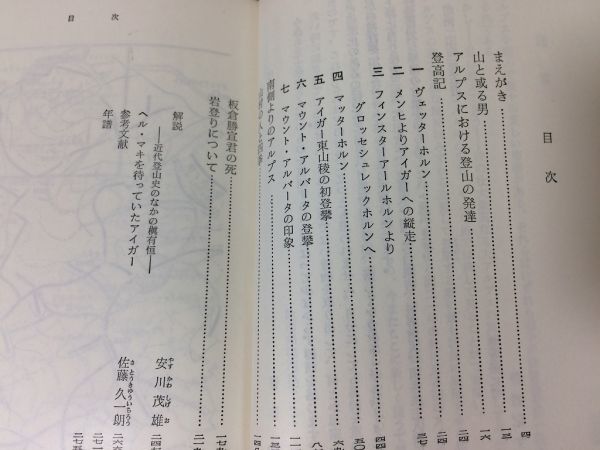 目次
まえがき
山と或る男
アルプスにおける登山の発達
登高記
一 ヴェッターホルン
二 メンヒよりアイガーへの縦走
三 フィンスターアールホルンより
グロッセシュレックホルンへ
四 マッターホルン
五 アイガー東山稜の初登攀
六 マウント・アルバータの登攀
七 マウント・アルバータの印象
南側よりのアルプス
目次
板倉勝宣君の死
岩登りについて
解説
―近代登山史のなかの槇有恒―
安川茂雄
やすかわしげお
ヘル・マキを待っていたアイガー
佐藤久一朗
さとうきゅういちろう
参考文献
年譜